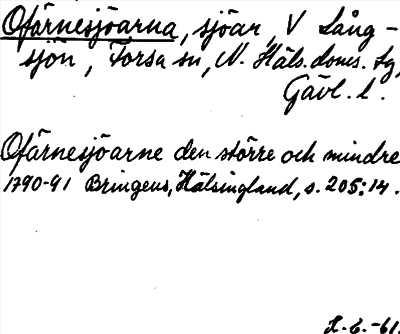 Ofärnesjöarna, sjöar, V Lång-
sjön, Forsa sn, N. Häls. doms. tg,
Gävl. l.
Ofärnesjöarne den större och mindre
1790-91 Bringeus, Hälsingland, s. 205:14.
H.E.-61.